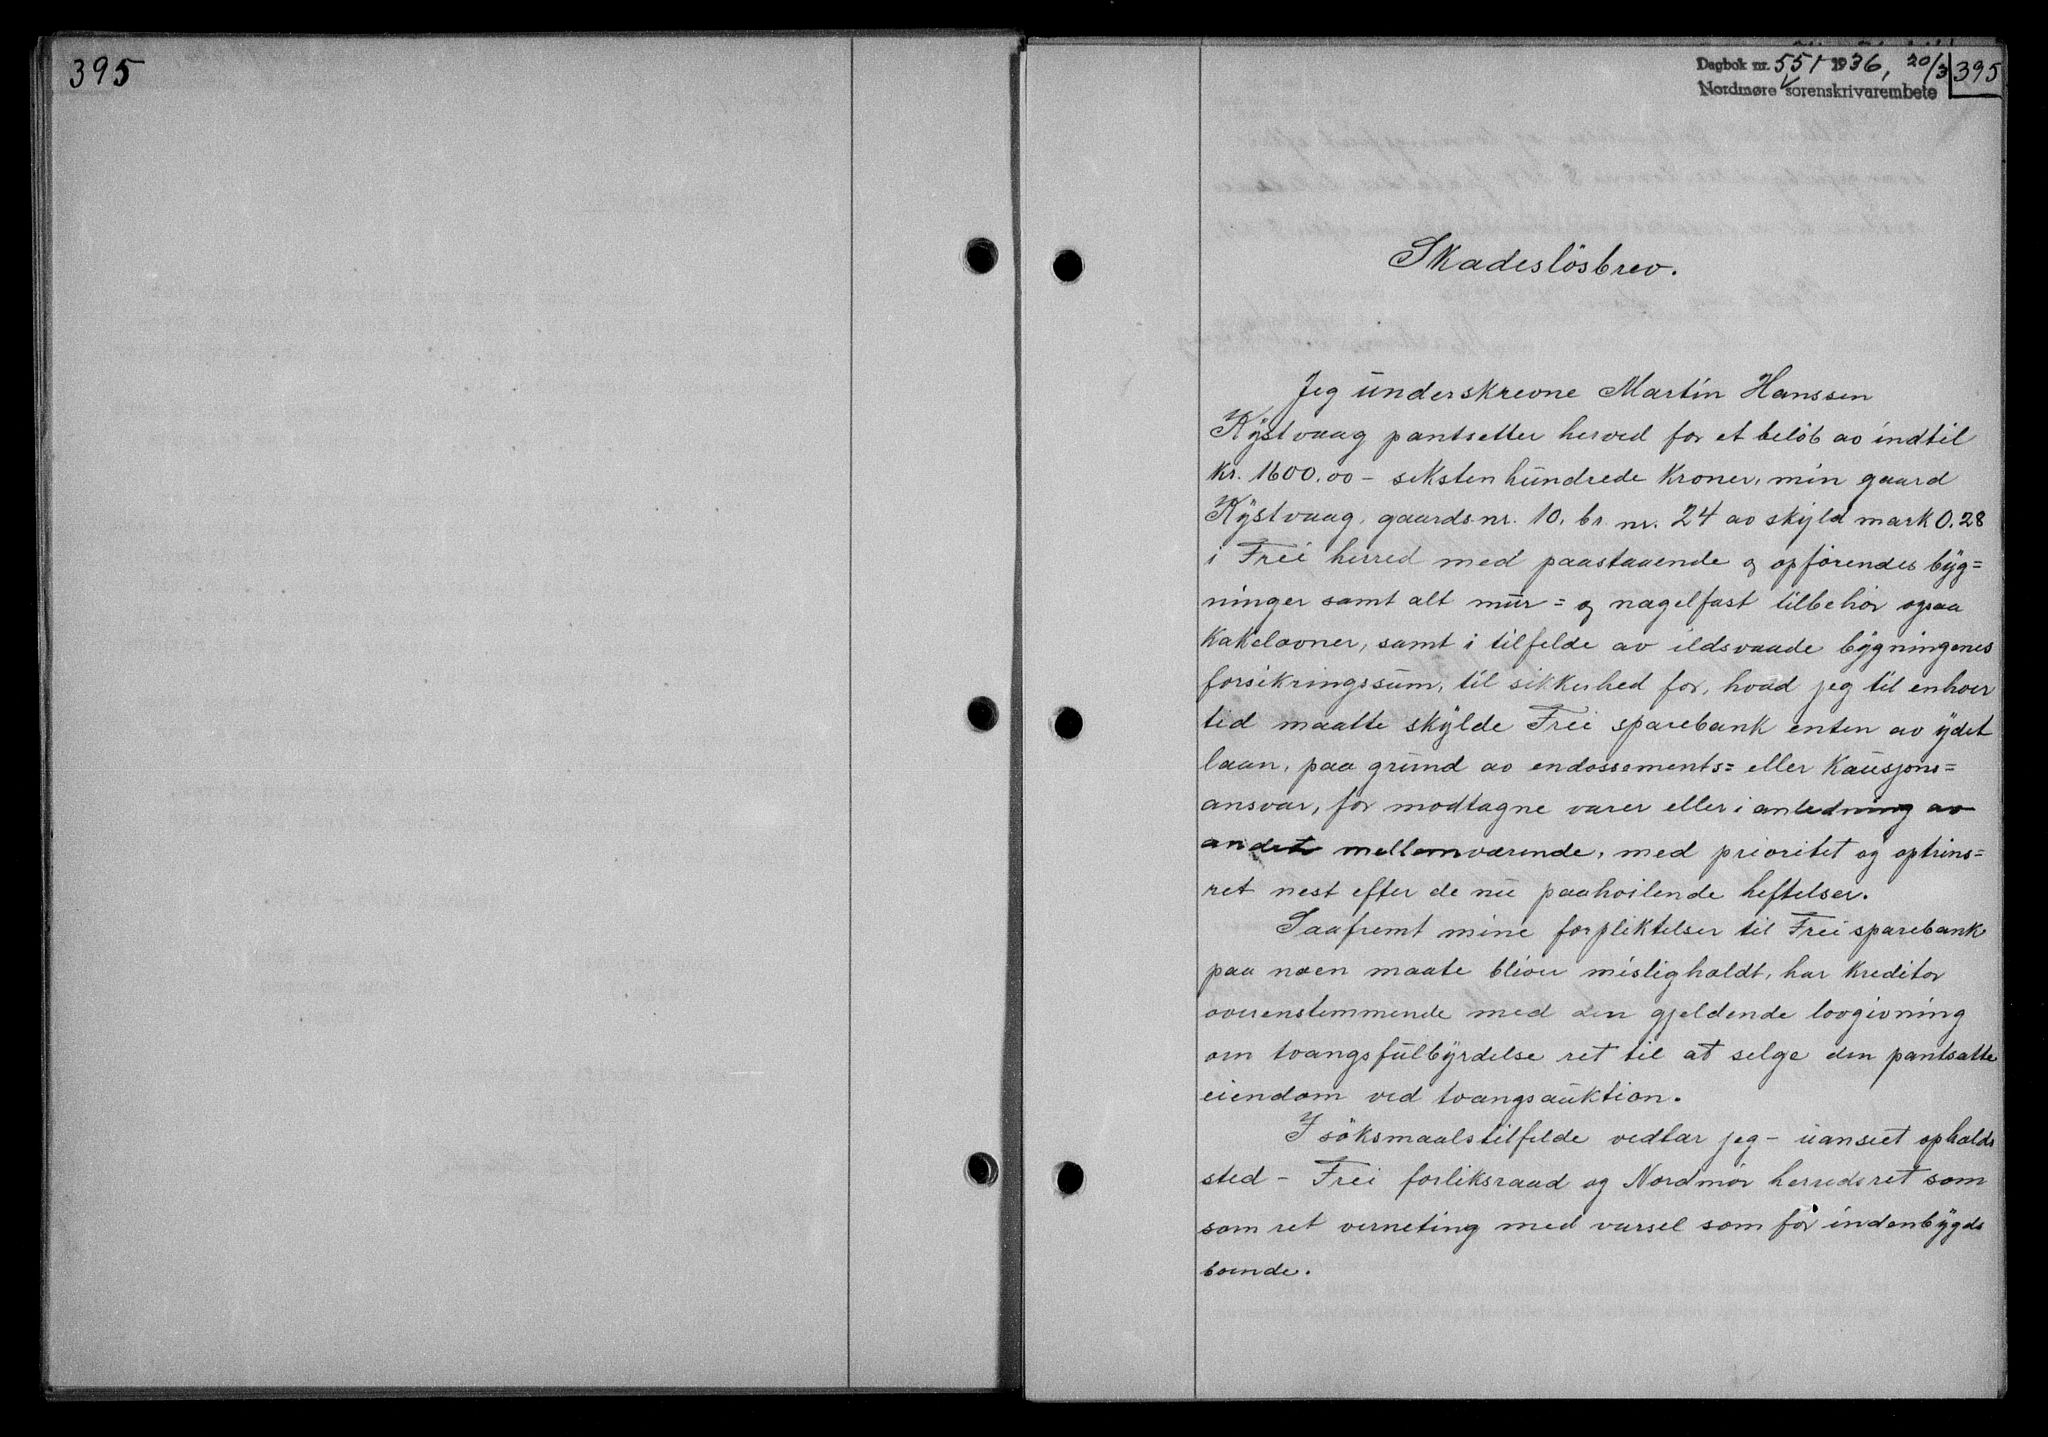 395
Dagbok nr. 551 1936, 20/3 395
Nordmøre sorenskrivarembete
Skadeslösbrev.
Jeg underskrevne Martin Hanssen
Kystvaag pantsetter herved for et beløb av indtil
Kr. 1600.00 - seksten hundrede Kroner, min gaard
Kystvaag, gaards nr. 10, br. nr. 24 av skyld mark 0.28
i Frei herred med paastaaende og opførendes byg=
ninger samt alt mur= og nagelfast tilbehør ogsaa
Kakelovner, samt i tilfelde av ildsvaade bygningenes
forsikringssum, til sikkerhed for, hvad jeg til enhver
tid maatte skylde Frei sparebank enten av ydet
laan, paa grund av endossements= eller Kausjons=
ansvar, for modtagne varer eller i anledning av
andet mellemværende, med prioritet og optrins=
ret nest efter de nu paahvilende heftelser.
Saafremt mine forpliktelser til Frei sparebank
paa noen maate bliver misligholdt, har Kreditor
overenstemmende med den gjeldende lovgivning
om tvangsfulbyrdelse ret til at selge den pantsatte
eiendom ved tvangsauktion.
I söksmaalstilfelde vedtar jeg - uanseet opholds
sted - Frei forliksraad og Nordmör herredsret som
som ret verneting med varsel som for indenbygds
boende.